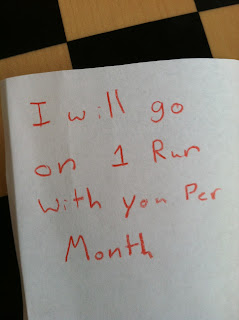 I will go
on 1 Run
with you Per
Month